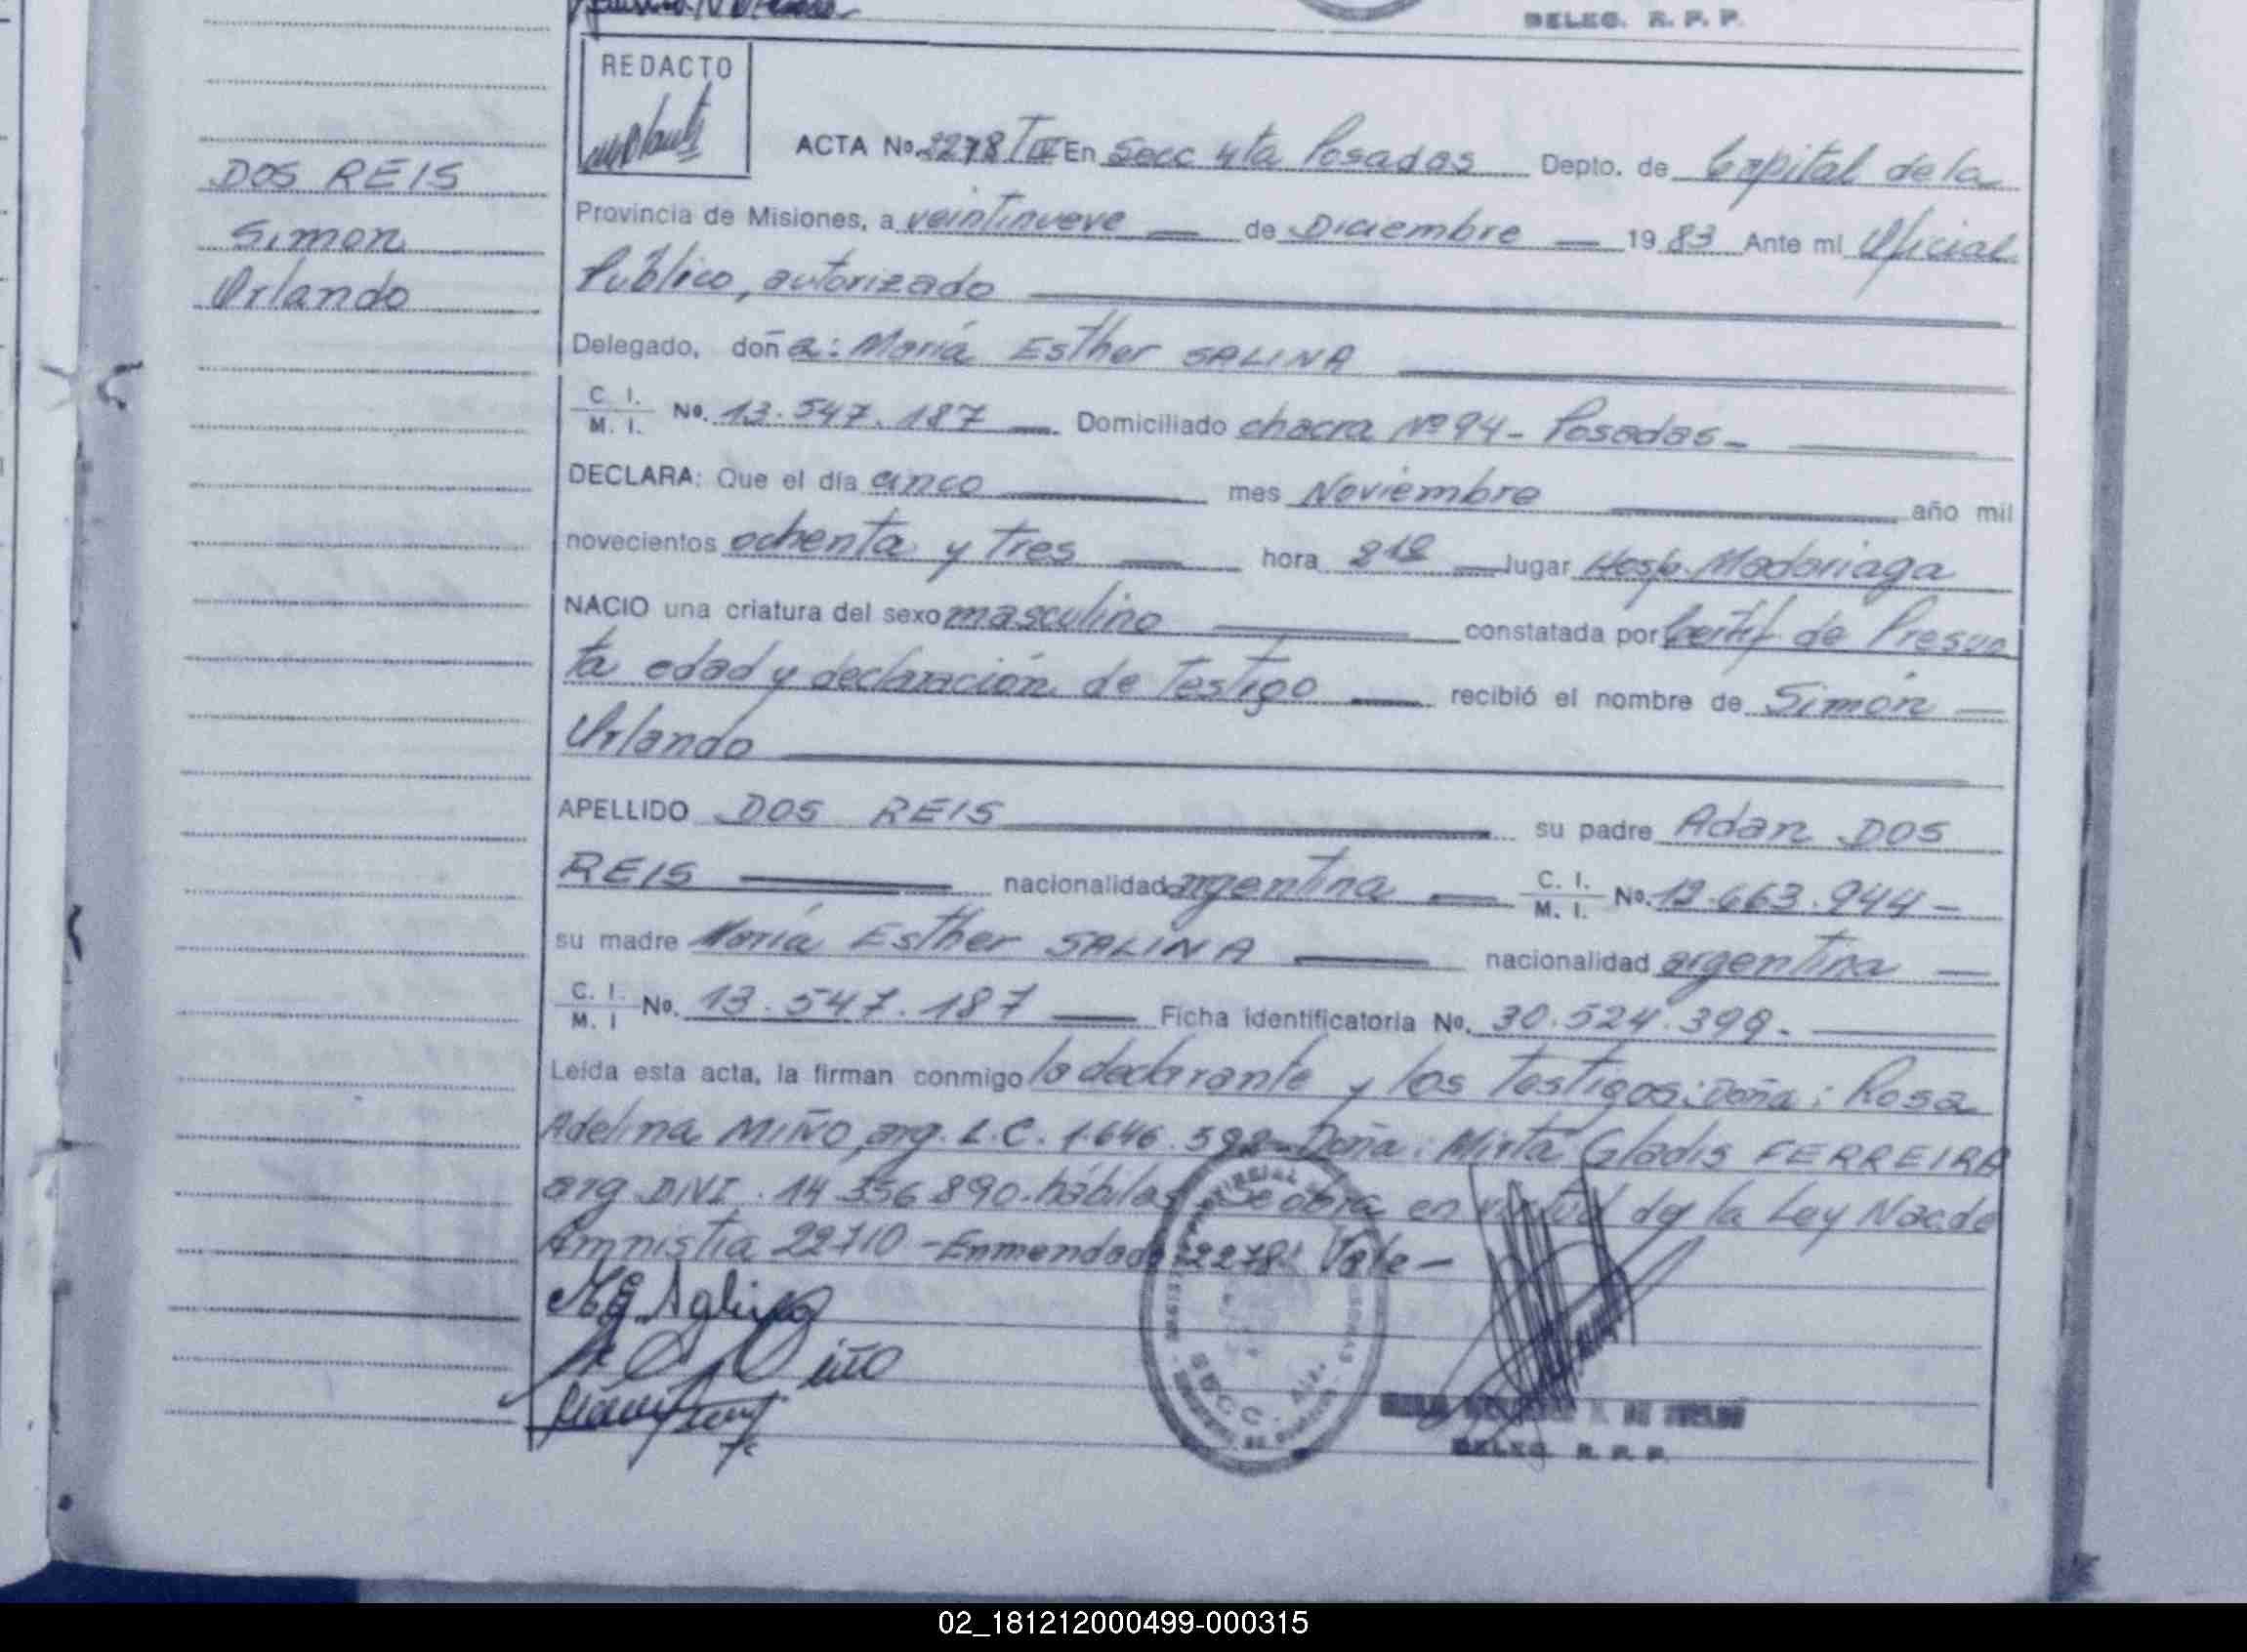 DELEG. R. P. P.
REDACTO
ACTA No. 2278 T III En Secc 4ta Posadas Depto. de Capital de la
DOS REIS
Simon
Orlando
Provincia de Misiones, a veintinueve de Diciembre 1983 Ante mi Oficial
Público, autorizado
Delegado, doña: María Esther SALINA
C. I. / M. I. No. 13.547.187 Domiciliado chacra Nº 94 - Posadas -
DECLARA: Que el día cinco mes Noviembre año mil
novecientos ochenta y tres hora lugar Hosp. Madariaga
NACIO una criatura del sexo masculino constatada por Certif de Presun
ta edad y declaración de Testigo recibió el nombre de Simón
Orlando
APELLIDO DOS REIS su padre Adan DOS
REIS nacionalidad argentina C. I. / M. I. No. 12.663.944 -
su madre María Esther SALINA nacionalidad argentina
C. I. / M. I No. 13.547.187 Ficha identificatoria No. 30.524.399.
Leída esta acta, la firman conmigo la declarante y los Testigos: Doña: Rosa
Adelina MIÑO, arg. L.C. 1.646.592 - Doña: Mirta Gladis FERREIRA
arg DNI. 14 356 890. hábiles Se obra en virtud de la Ley Nac. de
Amnistía 22710 - Enmendado: 2278: Vale -
DELEG. R. P. P.
02_181212000499-000315